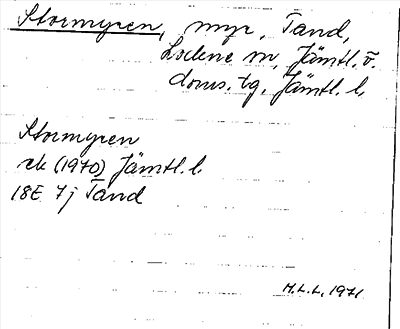 Stormyren, myr, Tand,
Lockne sn, Jämtl. ö.
doms. tg, Jämtl. l.
Stormyren
ek (1970) Jämtl. l.
18E 7j Tand
H.L.L, 1971